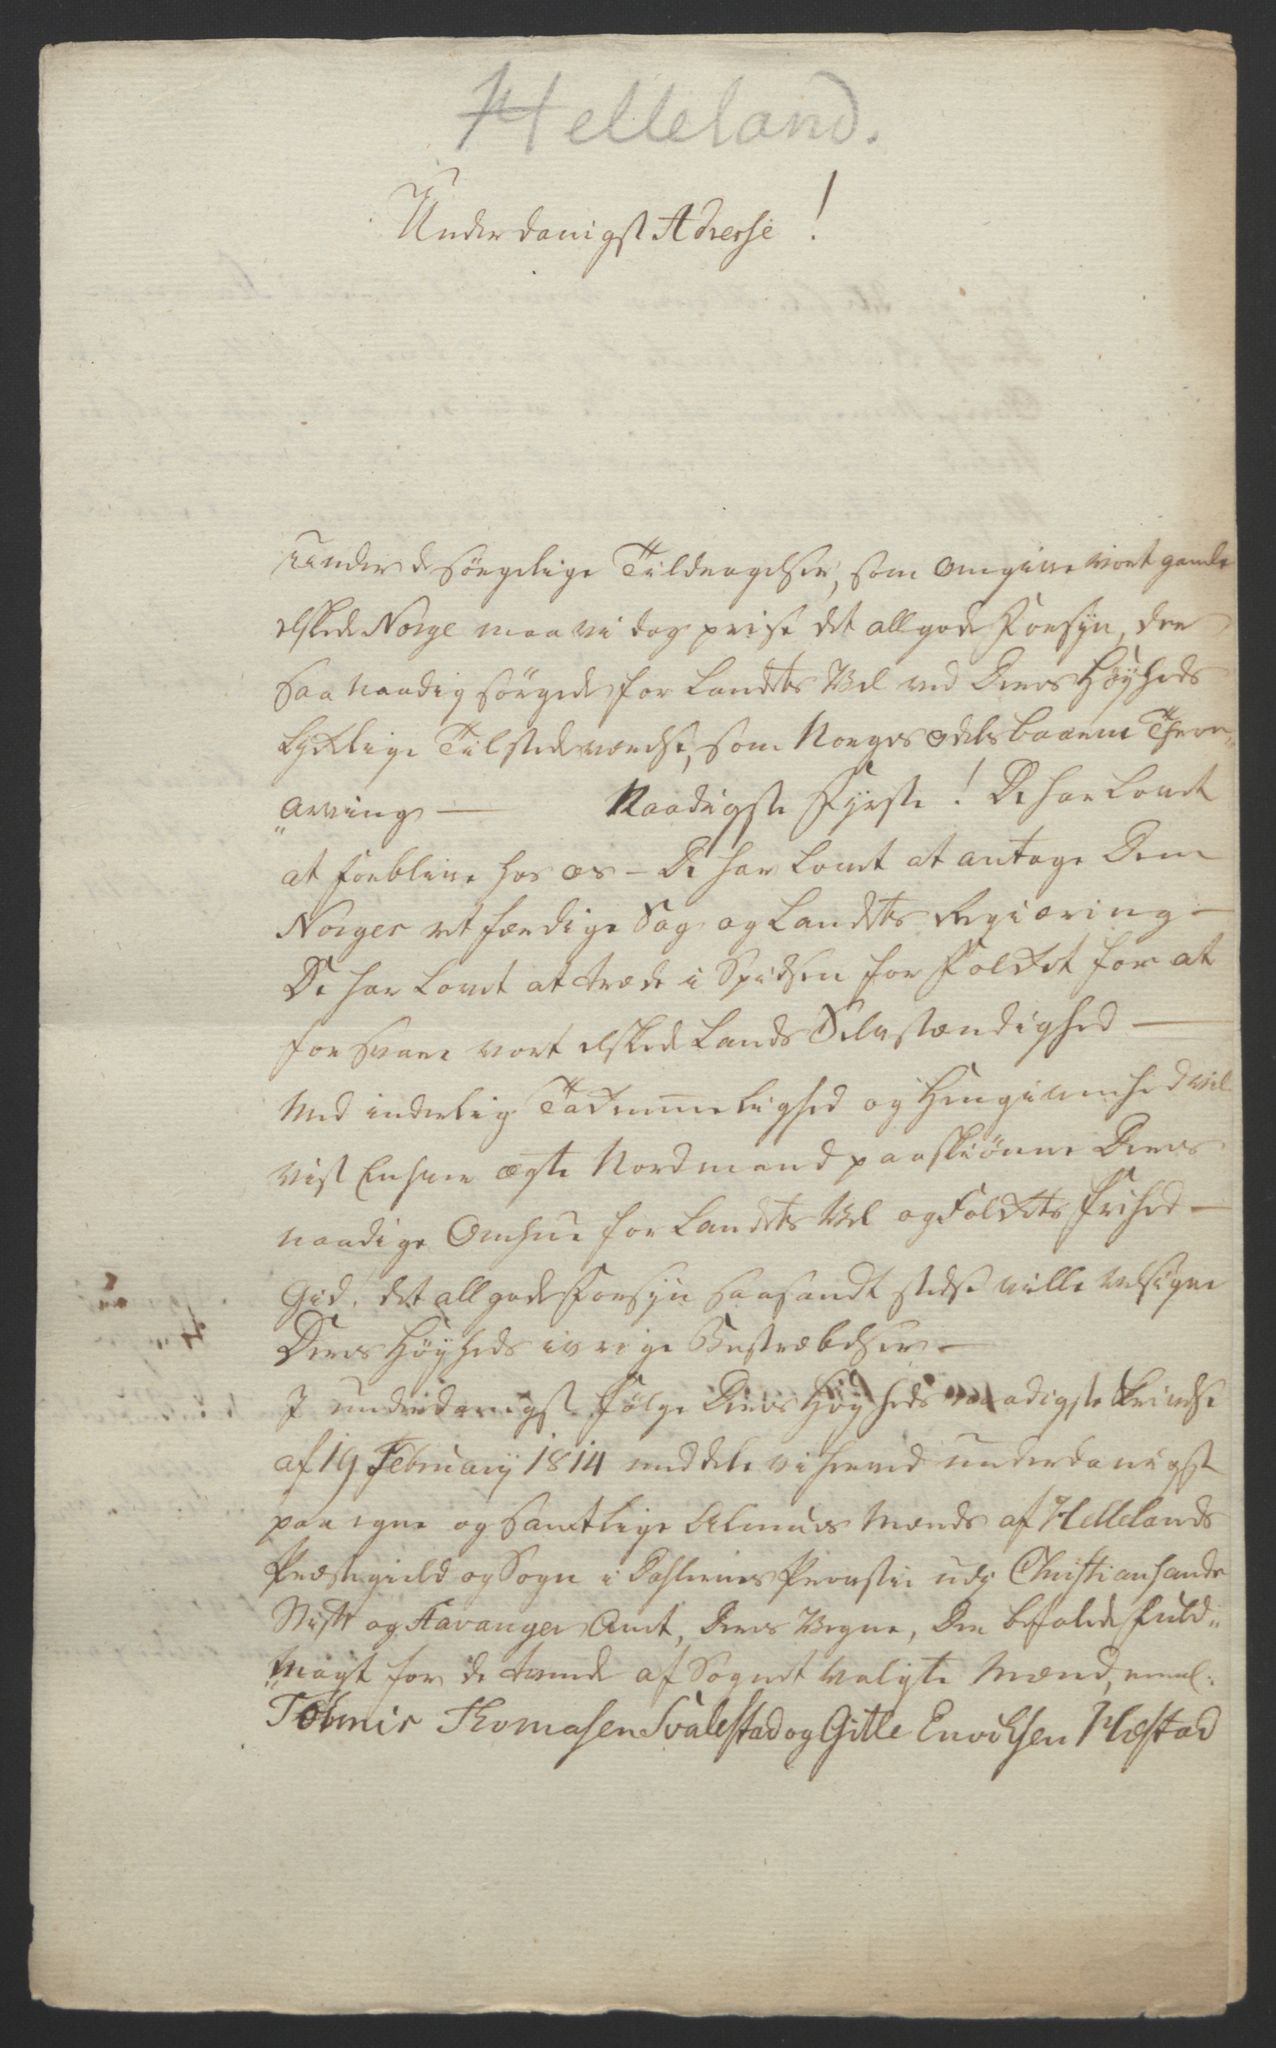 Helleland.
Underdanigst Adresse!
Under de sörgelige Tildragelser, som omgive vort gamle
elskede Norge maa vi dog prise det allgode Forsyn, der
saa naadig sörgede for Landets Vel ved Deres Höyheds
lykkelige Tilstedeværelse, som Norges odelsbaarne Thron„
„arving — Naadigste Fyrste! De har lovet
at forblive hos os — De har lovet at antage Dem
Norges retfærdige Sag og Landets Regiæring —
De har lovet at træde i Spidsen for Folket for at
forsvare vort elskede Lands Selvstændighed —
Med inderlig Taknemmelighed og Hengivenhed vil
vist Enhver ægte Nordmand paaskiönne Deres
naadige Omhue for Landets Vel og Folkets Frihed —
Gid det allgode Forsyn saasandt stedse ville velsigne
Deres Höyheds ivrige Bestræbelser —
I underdanigst Fölge Deres Höyheds naadigste Skrivelse
af 19 February 1814 meddele vi herved underdanigst
paa egne og samtlige Almues Mænds af Hellelands
Præstegield og Sogn i Dahlernes Provstie udi Christiansands
Stift og Stavanger Amt, Deres Vegne, Den befalede Fuld„
„magt for de tvende af Sognet valgte Mænd, neml:
Tönnis Thomasen Svalestad og Gitle Enocksen Hæstad